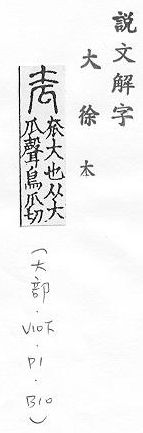 說文解字
大徐本
大也从大
瓜聲烏瓜切
(大部．V10下．P1．B10)